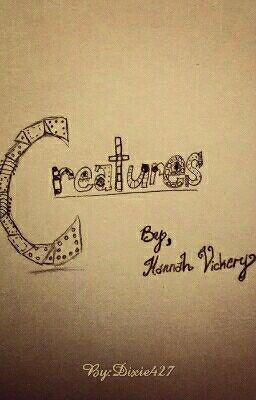 Creatures
By,
Hannah Vickery
By:Dixie427